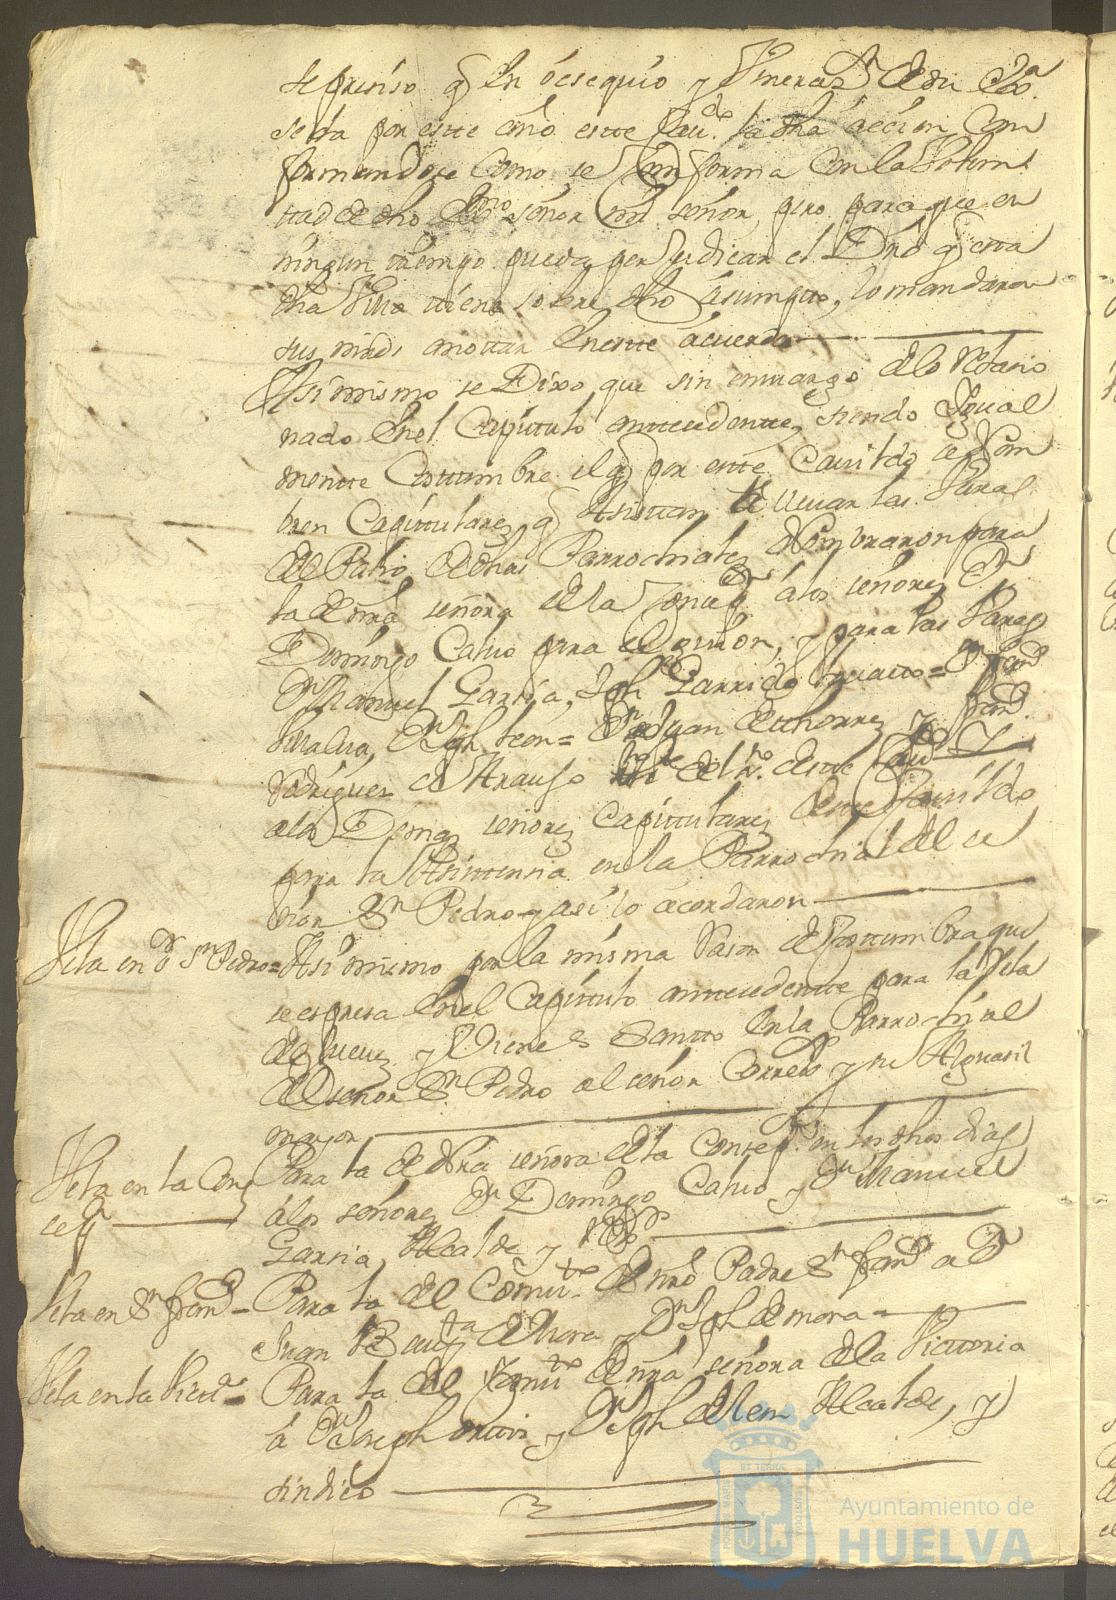 se preciso q en ôbsequio y
se da por este año este Cavdo la dha acción con
formandose como se conforma con la Volun
ttad de dho Exmo señor mi señor, pero para que en
ningun tiempo pueda perjudicar el Dro q esta
dha Villa tiene sobre dho asumpto, lo mandaron
sus mrds anottar en este acuerdo
Assimismo se Dixo que sin embargo de lo relacio
nado en el Capitulo antecedente, siendo Igual
mente Costumbre el q por este Cavildo se Nom
bren Capitulares q Asistan a llevar las Varas
del Palio de dhas Parrochiales Nombraron para
la de nra señora de la Concepn â los señores Dn
Domingo Calvo para el guion, y para las Varas
Dn Manuel Garsia, Joph Garrido = Dn Franco
Dn Jph León = Dn Juan de thorres y Franco
Rodrigues de Araujo del no. deste Cavdo Y
a los Demas señores Capittulares deste Cavildo
para la Asistencia en la Parrochial del se
ñor Sn Pedro y asi lo acordaron
Vela en Sr Sn Pedro = Asi mismo por la misma Rason de Costumbre que
se espresa en el Capitulo antecedente para la Vela
de Jueves y Viernes Santto en la Parrochial
del Señor Sn Pedro al señor Corredor y su Alguasil
mayor
Vela en la Con Para la de Nra señora de la Concepn en los dhos dias
cepn a los señores Dn Domingo Calvo y Dn Manuel
Garsia, Alcalde y Rexor
Vela en Sn Franco = Para la del Convto de nro Padre Sn Franco a Dn
Juan Bauta de Mora y Dn Jph de mora =
Vela en la Victa = Para la del Convto de nra señora de la Victoria
â Dn Joseph ortis y Dn Jph de leon Alcalde, y
sindico
Ayuntamiento de
HUELVA